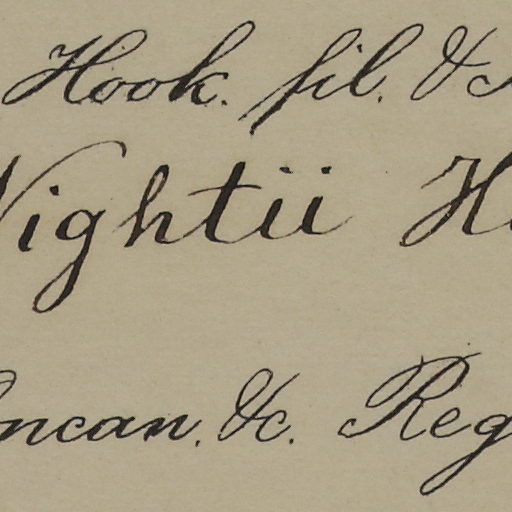 Hook. fil. &
Wightii H
ncan. &c. Reg